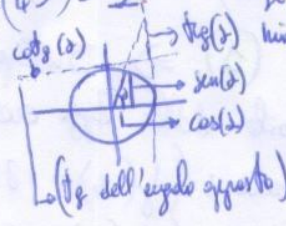 cotg(α)
tg(α)
sen(α)
cos(α)
(tg dell'angolo opposto)